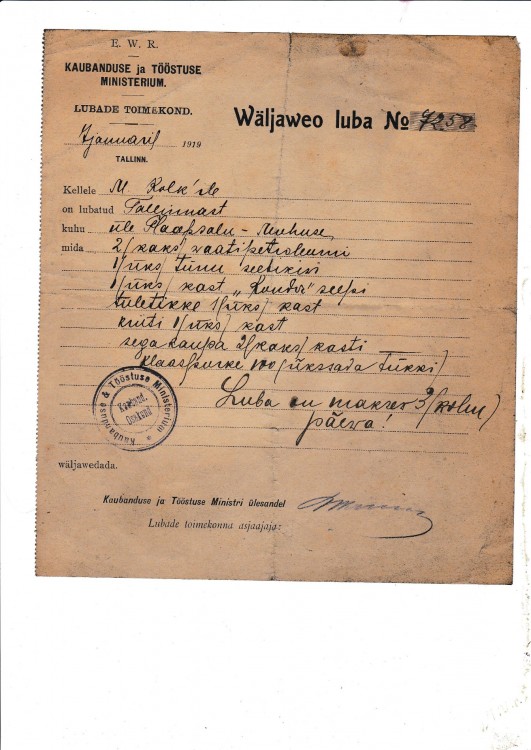 E. W. R.
KAUBANDUSE ja TÖÖSTUSE
MINISTERIUM.
LUBADE TOIMEKOND.
Wäljaweo luba № 7258
7 januaril 1919
TALLINN.
Kellele M. Kolk'ile
on lubatud Tallinnast
kuhu üle Haapsalu - Muhuse,
mida 2/kaks/ vaati petroleumi
1/üks/ tünn seebikivi
1/üks/ kast " " seepi
tuletikke 1/üks/ kast
1/üks/ kast
sega kaupa 2/kaks/ kasti
klaaspurke 100/ükssada tükki/
Luba on maksev 3/kolm/
päeva!
Kaubanduse & Tööstuse Ministerium
Osakond
wäljawedada.
Kaubanduse ja Tööstuse Ministri ülesandel
Lubade toimekonna asjaajaja: